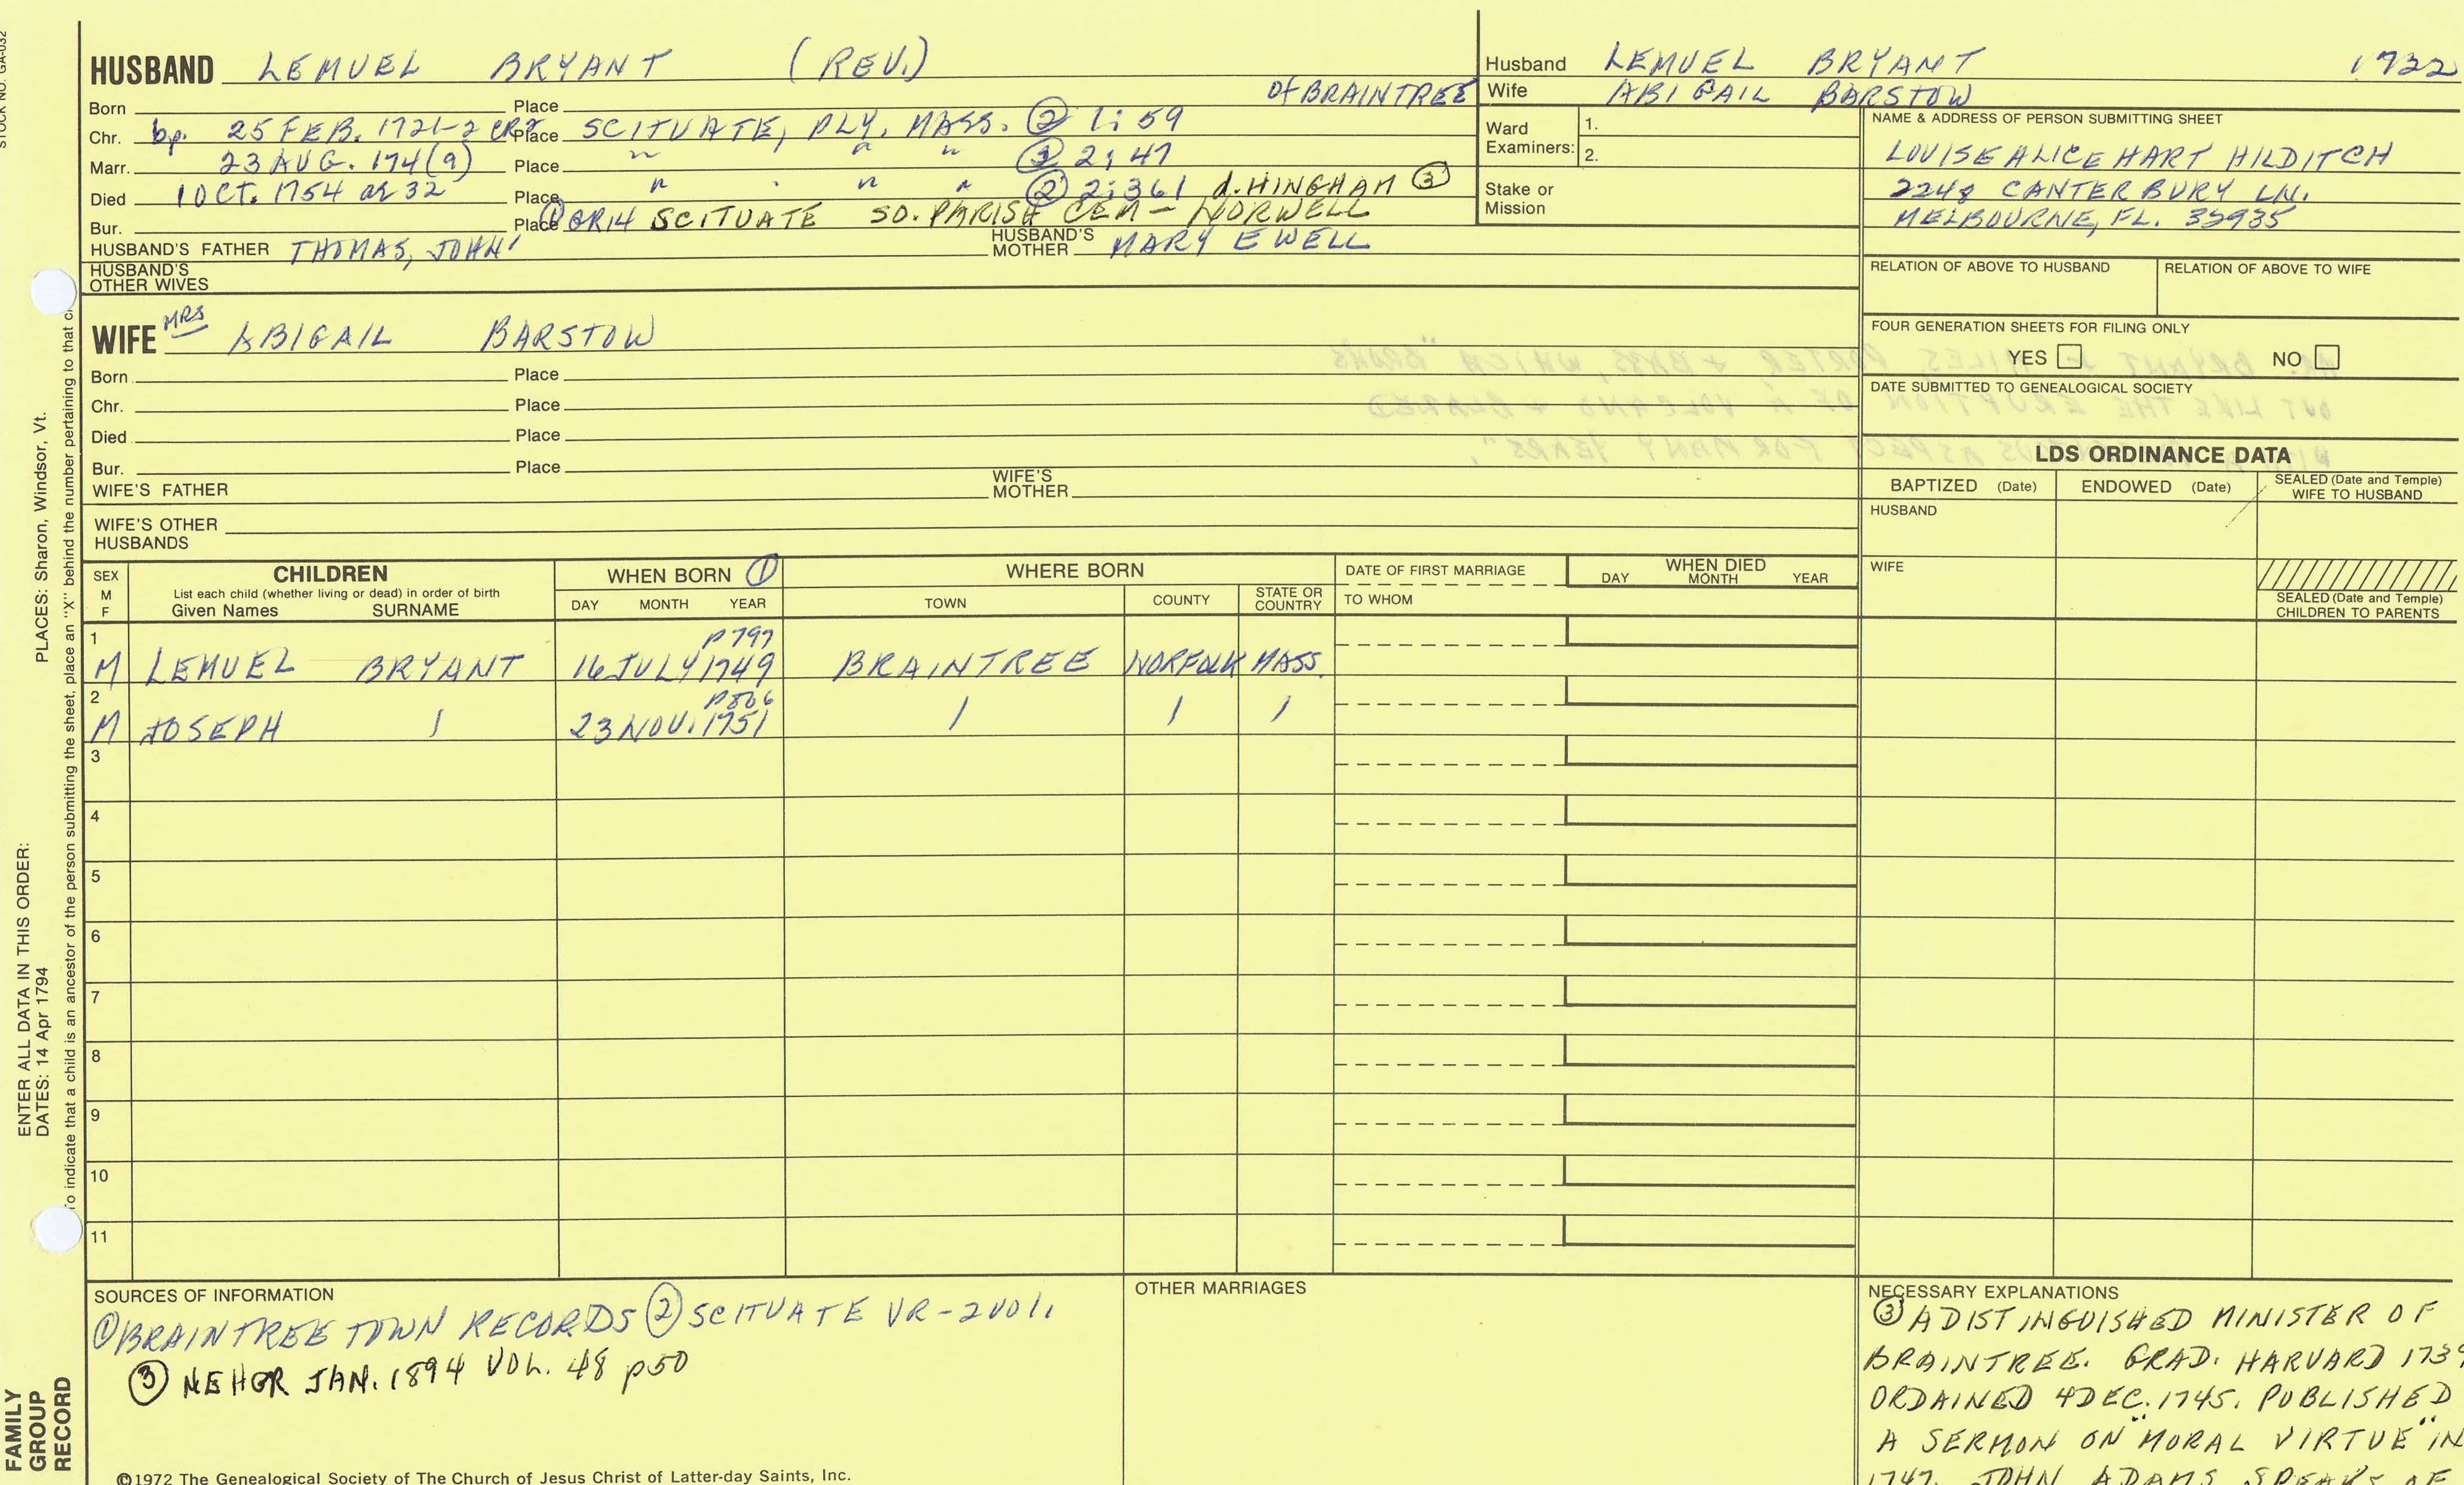 STOCK NO. GA-032
PLACES: Sharon, Windsor, Vt.
ENTER ALL DATA IN THIS ORDER:
DATES: 14 Apr 1794
To indicate that a child is an ancestor of the person submitting the sheet, place an "X" behind the number pertaining to that c
FAMILY
GROUP
RECORD
HUSBAND LEMUEL BRYANT (REV.)
Born Place OF BRAINTREE
Chr. bp. 25 FEB. 1721-2 CR2 Place SCITUATE, PLY. MASS. ② 1:59
Marr. 23 AUG. 174(9) Place " " " ③ 2:47
Died 1 OCT. 1754 ae 32 Place " " " ② 2:361 d. HINGHAM ③
Bur. Place ① GR14 SCITUATE SO. PARISH CEM - NORWELL
HUSBAND'S FATHER THOMAS, JOHN' HUSBAND'S MOTHER MARY EWELL
HUSBAND'S
OTHER WIVES
WIFE MRS ABIGAIL BARSTOW
Born Place
Chr. Place
Died Place
Bur. Place
WIFE'S FATHER WIFE'S MOTHER
WIFE'S OTHER
HUSBANDS
Husband LEMUEL BRYANT 1722
Wife ABIGAIL BARSTOW
Ward
Examiners: 1.
2.
Stake or
Mission
NAME & ADDRESS OF PERSON SUBMITTING SHEET
LOUISE ALICE HART HILDITCH
2248 CANTERBURY LN.
MELBOURNE, FL. 32935
RELATION OF ABOVE TO HUSBAND RELATION OF ABOVE TO WIFE
FOUR GENERATION SHEETS FOR FILING ONLY
YES NO
DATE SUBMITTED TO GENEALOGICAL SOCIETY
LDS ORDINANCE DATA
BAPTIZED (Date) ENDOWED (Date) SEALED (Date and Temple) WIFE TO HUSBAND
HUSBAND
WIFE
SEALED (Date and Temple)
CHILDREN TO PARENTS
SEX
M
F
CHILDREN
List each child (whether living or dead) in order of birth
Given Names SURNAME
WHEN BORN ①
DAY MONTH YEAR
WHERE BORN
TOWN COUNTY STATE OR COUNTRY
DATE OF FIRST MARRIAGE
TO WHOM
WHEN DIED
DAY MONTH YEAR
1 p797
M LEMUEL BRYANT 16 JULY 1749 BRAINTREE NORFOLK MASS.
2 p806
M JOSEPH / 23 NOV. 1751 / / /
3
4
5
6
7
8
9
10
11
SOURCES OF INFORMATION
① BRAINTREE TOWN RECORDS ② SCITUATE VR - 2 VOL.
③ NEHGR JAN. 1894 VOL. 48 p50
OTHER MARRIAGES
NECESSARY EXPLANATIONS
③ A DISTINGUISHED MINISTER OF
BRAINTREE. GRAD. HARVARD 1739
ORDAINED 4 DEC. 1745. PUBLISHED
A SERMON ON "MORAL VIRTUE" IN
1747. JOHN ADAMS SPEAKS OF
©1972 The Genealogical Society of The Church of Jesus Christ of Latter-day Saints, Inc.